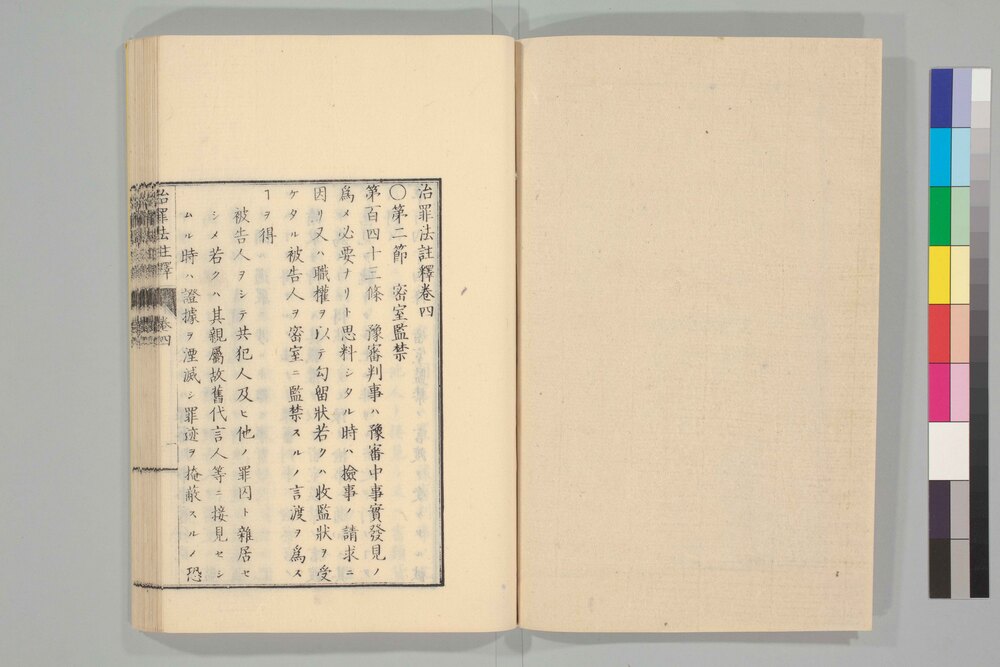 治罪法註釋卷四
〇第二節　密室監禁
第百四十三條　豫審判事ハ豫審中事實發見ノ
爲メ必要ナリト思料シタル時ハ檢事ノ請求ニ
因リ又ハ職權ヲ以テ勾留狀若クハ收監狀ヲ受
ケタル被告人ヲ密室ニ監禁スルノ言渡ヲ爲ス
ヿヲ得
被告人ヲシテ共犯人及ヒ他ノ罪囚ト雜居セ
シメ若クハ其親屬故舊代言人等ニ接見セシ
ムル時ハ證據ヲ湮滅シ罪迹ヲ掩蔽スルノ恐
治罪法註釋　卷四　一